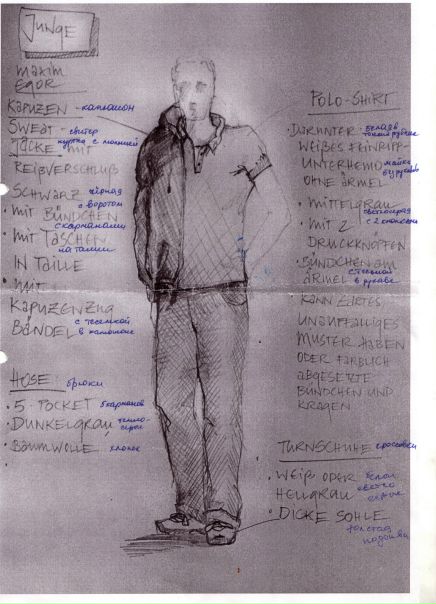 JUNGE
MAXIM
EGOR
KAPUZEN - капюшон
SWEAT - свитер
JACKE MIT куртка с молнией
REIßVERSCHLUß
• SCHWARZ чёрная
• MIT BÜNDCHEN с воротом
• MIT TASCHEN с карманами
IN TAILLE на талии
• MIT
KAPUZENZUG
BÄNDEL с тесёмкой в капюшоне
HOSE: брюки
• 5-POCKET 5 карманов
• DUNKELGRAU тёмно-серые
• BAUMWOLLE хлопок
POLO-SHIRT
• DARUNTER
WEIßES FEINRIPP-
UNTERHEMD майка
OHNE ÄRMEL без рукавов
• MITTELGRAU
• MIT 2 с 2 кнопками
DRUCKKNÖPFEN
• BÜNDCHEN AM
ÄRMEL с тесьмой в рукаве
• KANN ZARTES
UNAUFFÄLLIGES
MUSTER HABEN
ODER FARBLICH
ABGESETZTE
BÜNDCHEN UND
KRAGEN
TURNSCHUHE кроссовки
• WEIß ODER
HELLGRAU
• DICKE SOHLE
толстая
подошва